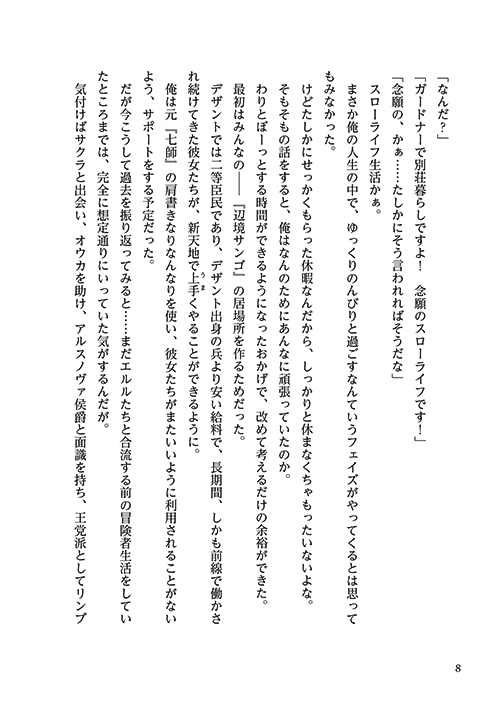 「なんだ？」
「ガードナーで別荘暮らしですよ！　念願のスローライフです！」
「念願の、かぁ……たしかにそう言われればそうだな」
スローライフ生活かぁ。
まさか俺の人生の中で、ゆっくりのんびりと過ごすなんていうフェイズがやってくるとは思って
もみなかった。
けどたしかにせっかくもらった休暇なんだから、しっかりと休まなくちゃもったいないよな。
そもそもの話をすると、俺はなんのためにあんなに頑張っていたのか。
わりとぼーっとする時間ができるようになったおかげで、改めて考えるだけの余裕ができた。
最初はみんなの――『辺境サンゴ』の居場所を作るためだった。
デザントでは二等臣民であり、デザント出身の兵より安い給料で、長期間、しかも前線で働かさ
れ続けてきた彼女たちが、新天地で上手くやることができるように。
うま
俺は元『七師』の肩書きなりなんなりを使い、彼女たちがまたいいように利用されることがない
よう、サポートをする予定だった。
だが今こうして過去を振り返ってみると……まだエルルたちと合流する前の冒険者生活をしてい
たところまでは、完全に想定通りにいっていた気がするんだが。
気付けばサクラと出会い、オウカを助け、アルスノヴァ侯爵と面識を持ち、王党派としてリンブ
8